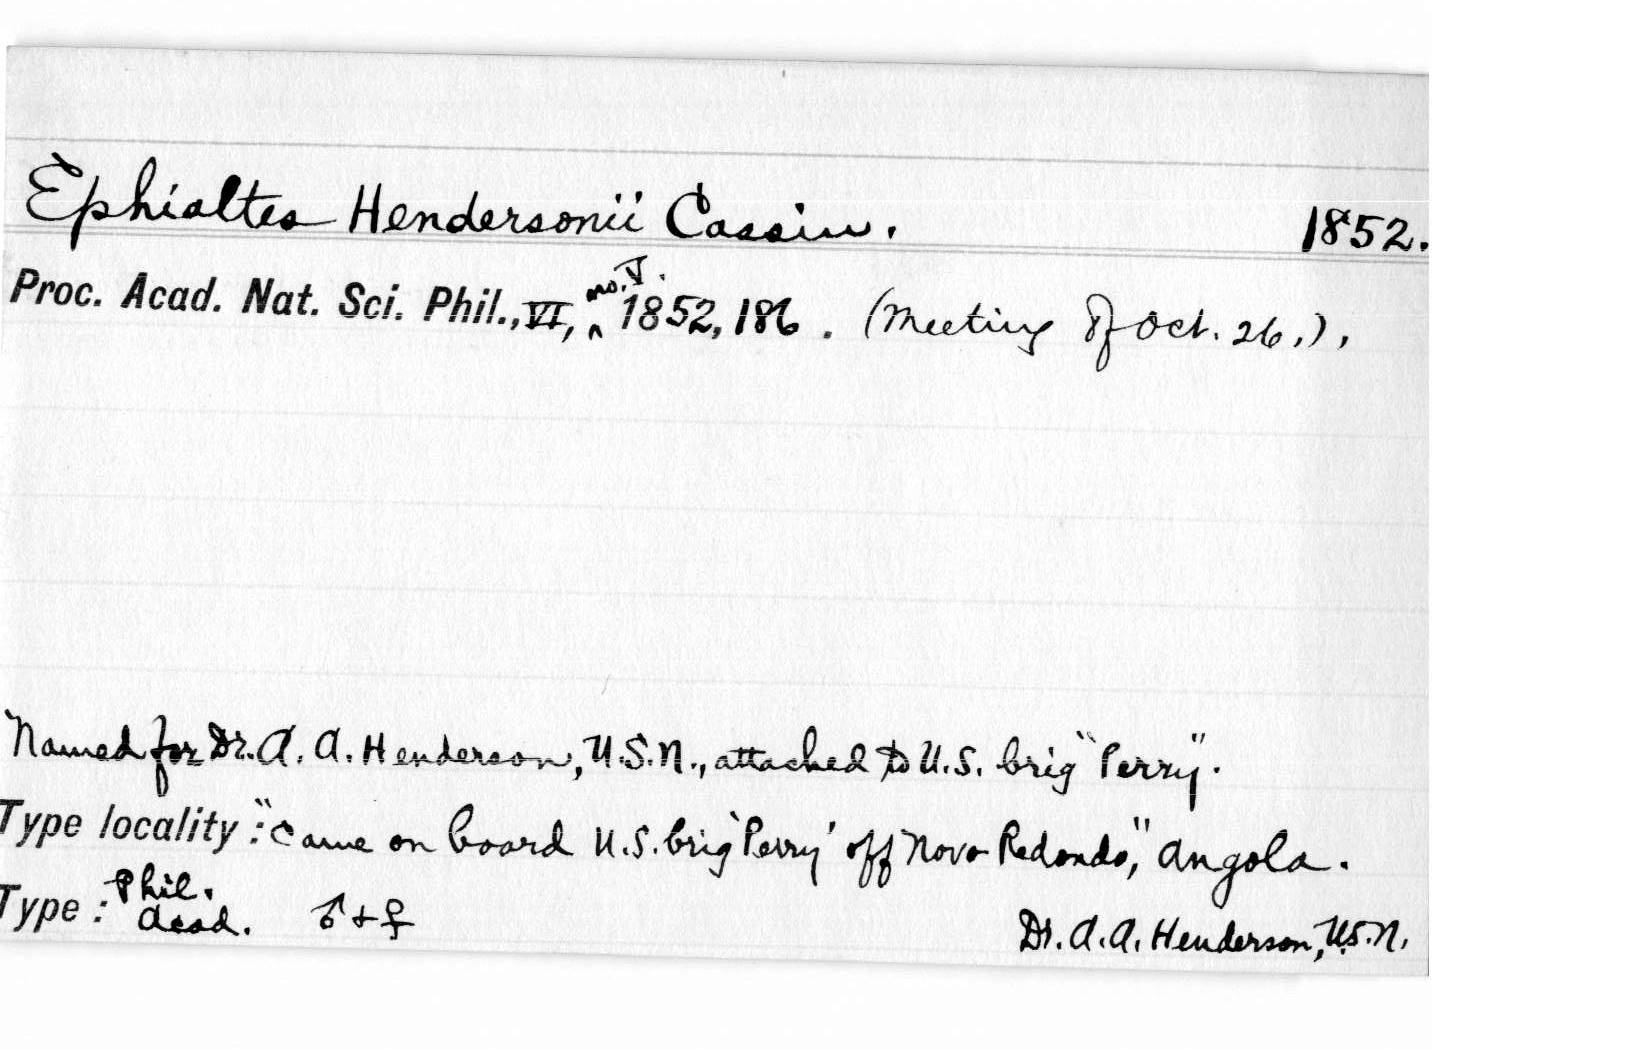 Ephialtes Hendersonii Cassin. 1852.
Proc. Acad. Nat. Sci. Phil., VI, ^ no. V. 1852, 186. (Meeting of Oct. 26.),
Named for Dr. A. A. Henderson, U.S.N., attached to U.S. brig "Perry".
Type locality: "Came on board U.S. brig 'Perry' off Novo Redondo," Angola.
Type: Phil. Acad. ♂ + ♀ Dr. A. A. Henderson, U.S.N.